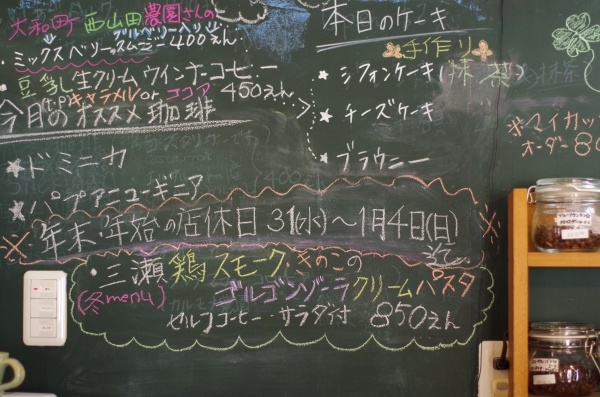 大和町 西山田農園さんの
ブルーベリー入り
・ミックスベリースムージー 400えん
・豆乳生クリームウインナーコーヒー
キャラメル or ココア 450えん
今月のオススメ珈琲
★ドミニカ
★パプアニューギニア
本日のケーキ
手作り
★シフォンケーキ(抹茶)
★チーズケーキ
★ブラウニー
※マイカッ
オーダー80
※年末・年始の店休日 31(水)〜1月4日(日)※
まで。
・三瀬鶏スモークときのこの
(冬menu) ゴルゴンゾーラクリームパスタ
セルフコーヒー・サラダ付 850えん